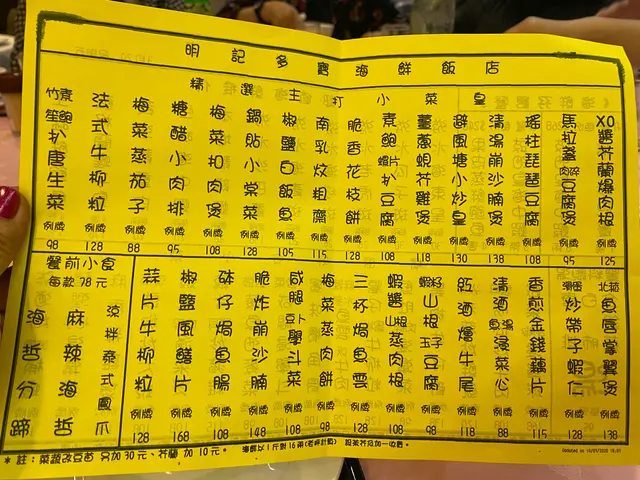 明記多寶海鮮飯店
精選主打小菜皇
XO醬芥蘭爆肉根 例牌 125
馬拉盞肉碎豆腐煲 例牌 95
瑤柱琵琶豆腐 例牌 108
清湯崩沙腩煲 例牌 138
避風塘小炒皇 例牌 130
薑蔥蜆芥雞煲 例牌 118
素鮑蝦片扒豆腐 例牌 108
脆香花枝餅 例牌 128
南乳炆粗齋 例牌 115
椒鹽白飯魚 例牌 105
鍋貼小棠菜 例牌 128
梅菜扣肉煲 例牌 108
糖醋小肉排 例牌 95
梅菜蒸茄子 例牌 88
法式牛柳粒 例牌 128
竹笙素鮑扒唐生菜 例牌 98
北菇魚唇掌翼煲 例牌 138
滑蛋炒帶子蝦仁 例牌 128
香煎金錢藕片 例牌 115
清酒魚湯浸菜心 例牌 88
紅酒燴牛尾 例牌 118
蝦籽山根玉子豆腐 例牌 98
蝦醬山根蒸肉根 例牌 108
三杯焗魚雲 例牌 128
梅菜蒸肉餅 例牌 98
咸腿豆卜學斗菜 例牌 108
脆炸崩沙腩 例牌 148
砵仔焗魚腸 例牌 108
椒鹽風鱔片 例牌 168
蒜片牛柳粒 例牌 128
餐前小食
每款 78 元
涼拌泰式鳳爪
麻辣海哲
海哲分蹄
* 註：菜蔬改豆苗 另加 30 元、芥蘭 加 10 元。